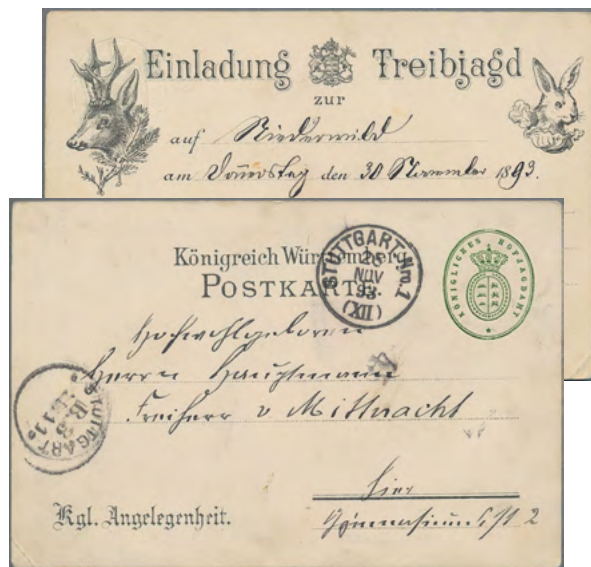 Einladung Treibjagd
zur
auf Niederwild
am Donnerstag den 30 November 1893.
Königreich Württemberg.
POSTKARTE.
STUTTGART Nro.1
25
NOV
93
(XII)
KÖNIGLICHES HOFJAGDAMT
Hochwohlgeboren
Herrn Hauptmann
Freiherr v Mittnacht
STUTTGART
B3
Hier
Kgl. Angelegenheit.
Gymnasiumsst 2